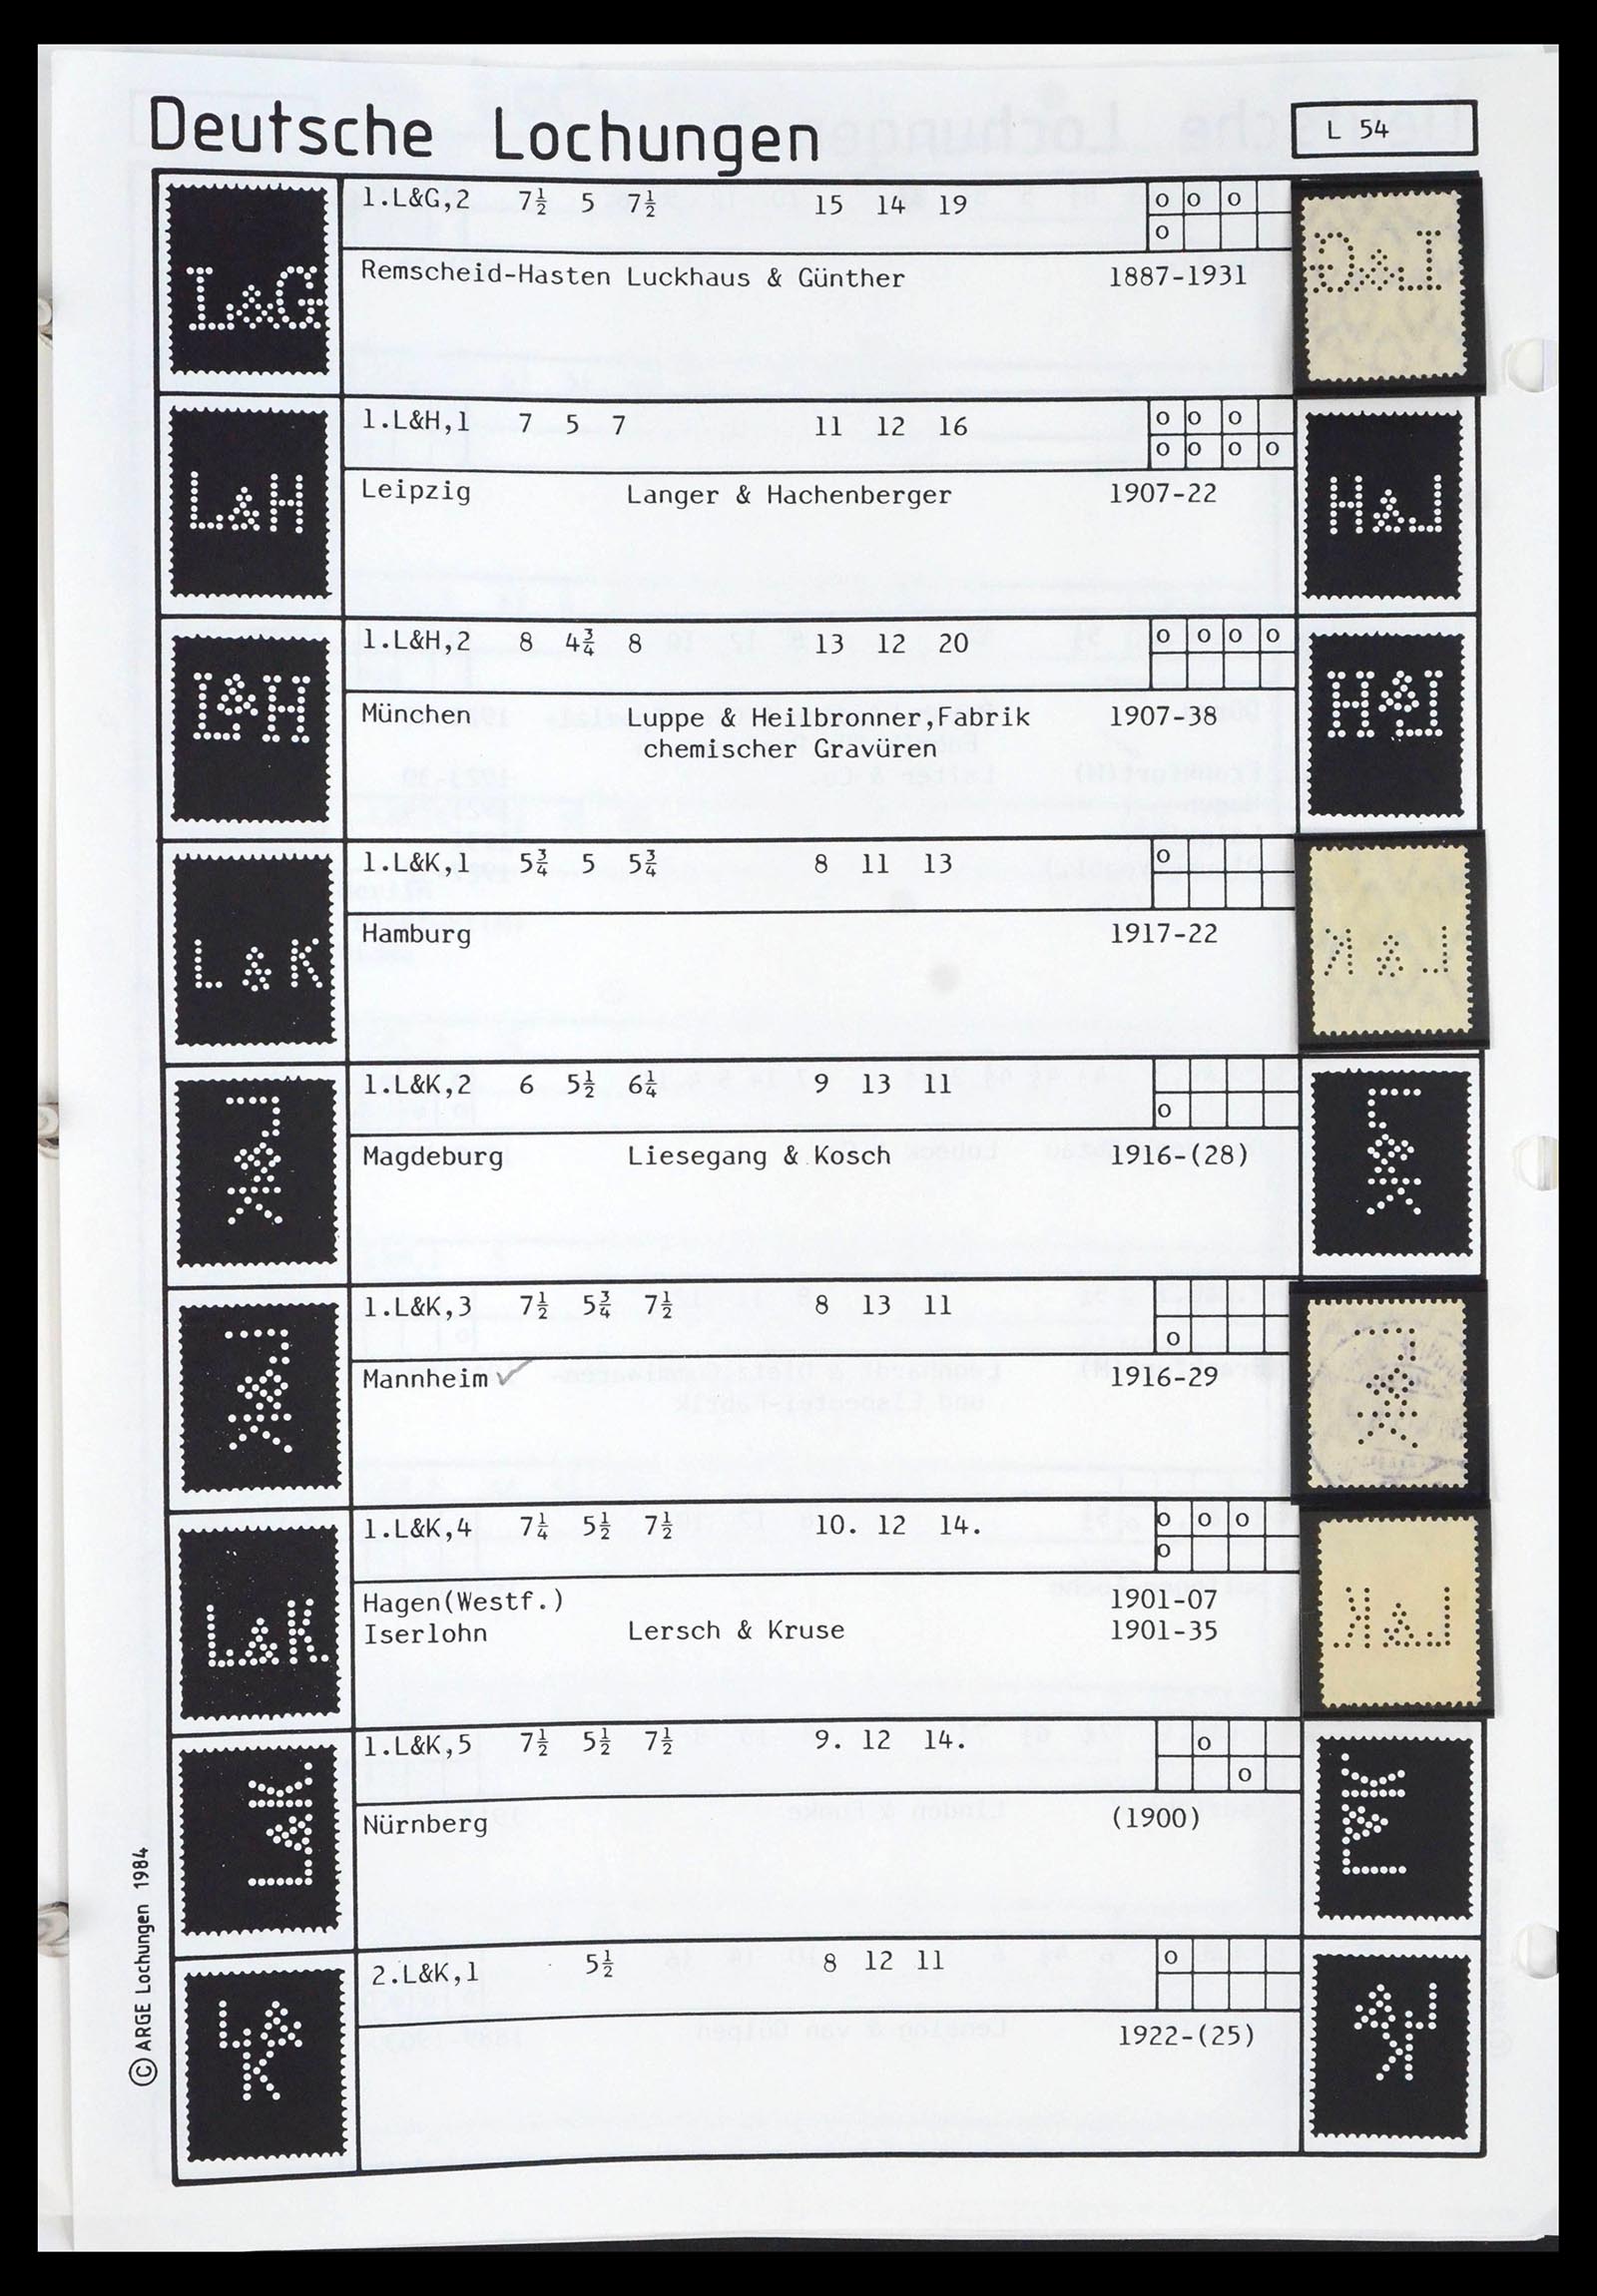 Deutsche Lochungen
L 54
L&G
1.L&G,2 7½ 5 7½ 15 14 19
o o o
o
Remscheid-Hasten Luckhaus & Günther 1887-1931
L&G
L&H
1.L&H,1 7 5 7 11 12 16
o o o
o o o o
Leipzig Langer & Hachenberger 1907-22
L&H
L&H
1.L&H,2 8 4¾ 8 13 12 20
o o o o
München Luppe & Heilbronner,Fabrik 1907-38
chemischer Gravüren
L&H
L&K
1.L&K,1 5¾ 5 5¾ 8 11 13
o
Hamburg 1917-22
L&K
L&K
1.L&K,2 6 5½ 6¼ 9 13 11
o
Magdeburg Liesegang & Kosch 1916-(28)
L&K
L&K
1.L&K,3 7½ 5¾ 7½ 8 13 11
o
Mannheim ✓ 1916-29
L&K
L&K
1.L&K,4 7¼ 5½ 7½ 10. 12 14.
o o o
o
Hagen(Westf.) 1901-07
Iserlohn Lersch & Kruse 1901-35
L&K
L&K
1.L&K,5 7½ 5½ 7½ 9. 12 14.
o
o
Nürnberg (1900)
L&K
L&
K
2.L&K,1 5½ 8 12 11
o
1922-(25)
L&
K
© ARGE Lochungen 1984